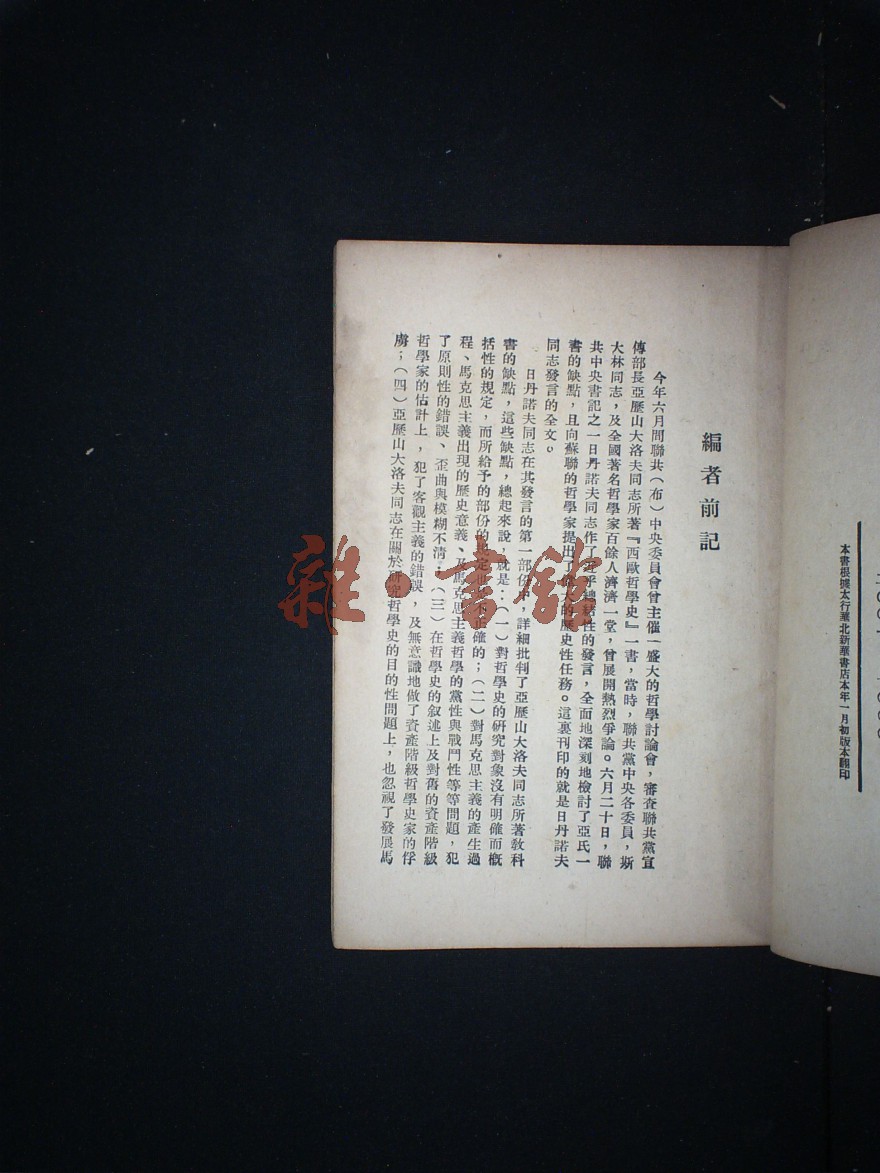 本書根據太行華北新華書店本年一月初版本翻印
編者前記
今年六月間聯共（布）中央委員會曾主催一盛大的哲學討論會，審查聯共黨宣
傳部長亞歷山大洛夫同志所著『西歐哲學史』一書，當時，聯共黨中央各委員，斯
大林同志，及全國著名哲學家百餘人濟濟一堂，曾展開熱烈爭論。六月二十日，聯
共中央書記之一日丹諾夫同志作了近乎總結性的發言，全面地深刻地檢討了亞氏一
書的缺點，且向蘇聯的哲學家提出了偉大的歷史性任務。這裏刊印的就是日丹諾夫
同志發言的全文。
日丹諾夫同志在其發言的第一部份中，詳細批判了亞歷山大洛夫同志所著教科
書的缺點，這些缺點，總起來說，就是：（一）對哲學史的研究對象沒有明確而概
括性的規定，而所給予的部份的規定也是不正確的；（二）對馬克思主義的產生過
程、馬克思主義出現的歷史意義、及馬克思主義哲學的黨性與戰鬥性等等問題，犯
了原則性的錯誤、歪曲與模糊不清；（三）在哲學史的叙述上及對舊的資產階級
哲學家的估計上，犯了客觀主義的錯誤，及無意識地做了資產階級哲學史家的俘
虜；（四）亞歷山大洛夫同志在關於研究哲學史的目的性問題上，也忽視了發展馬
雜·書館